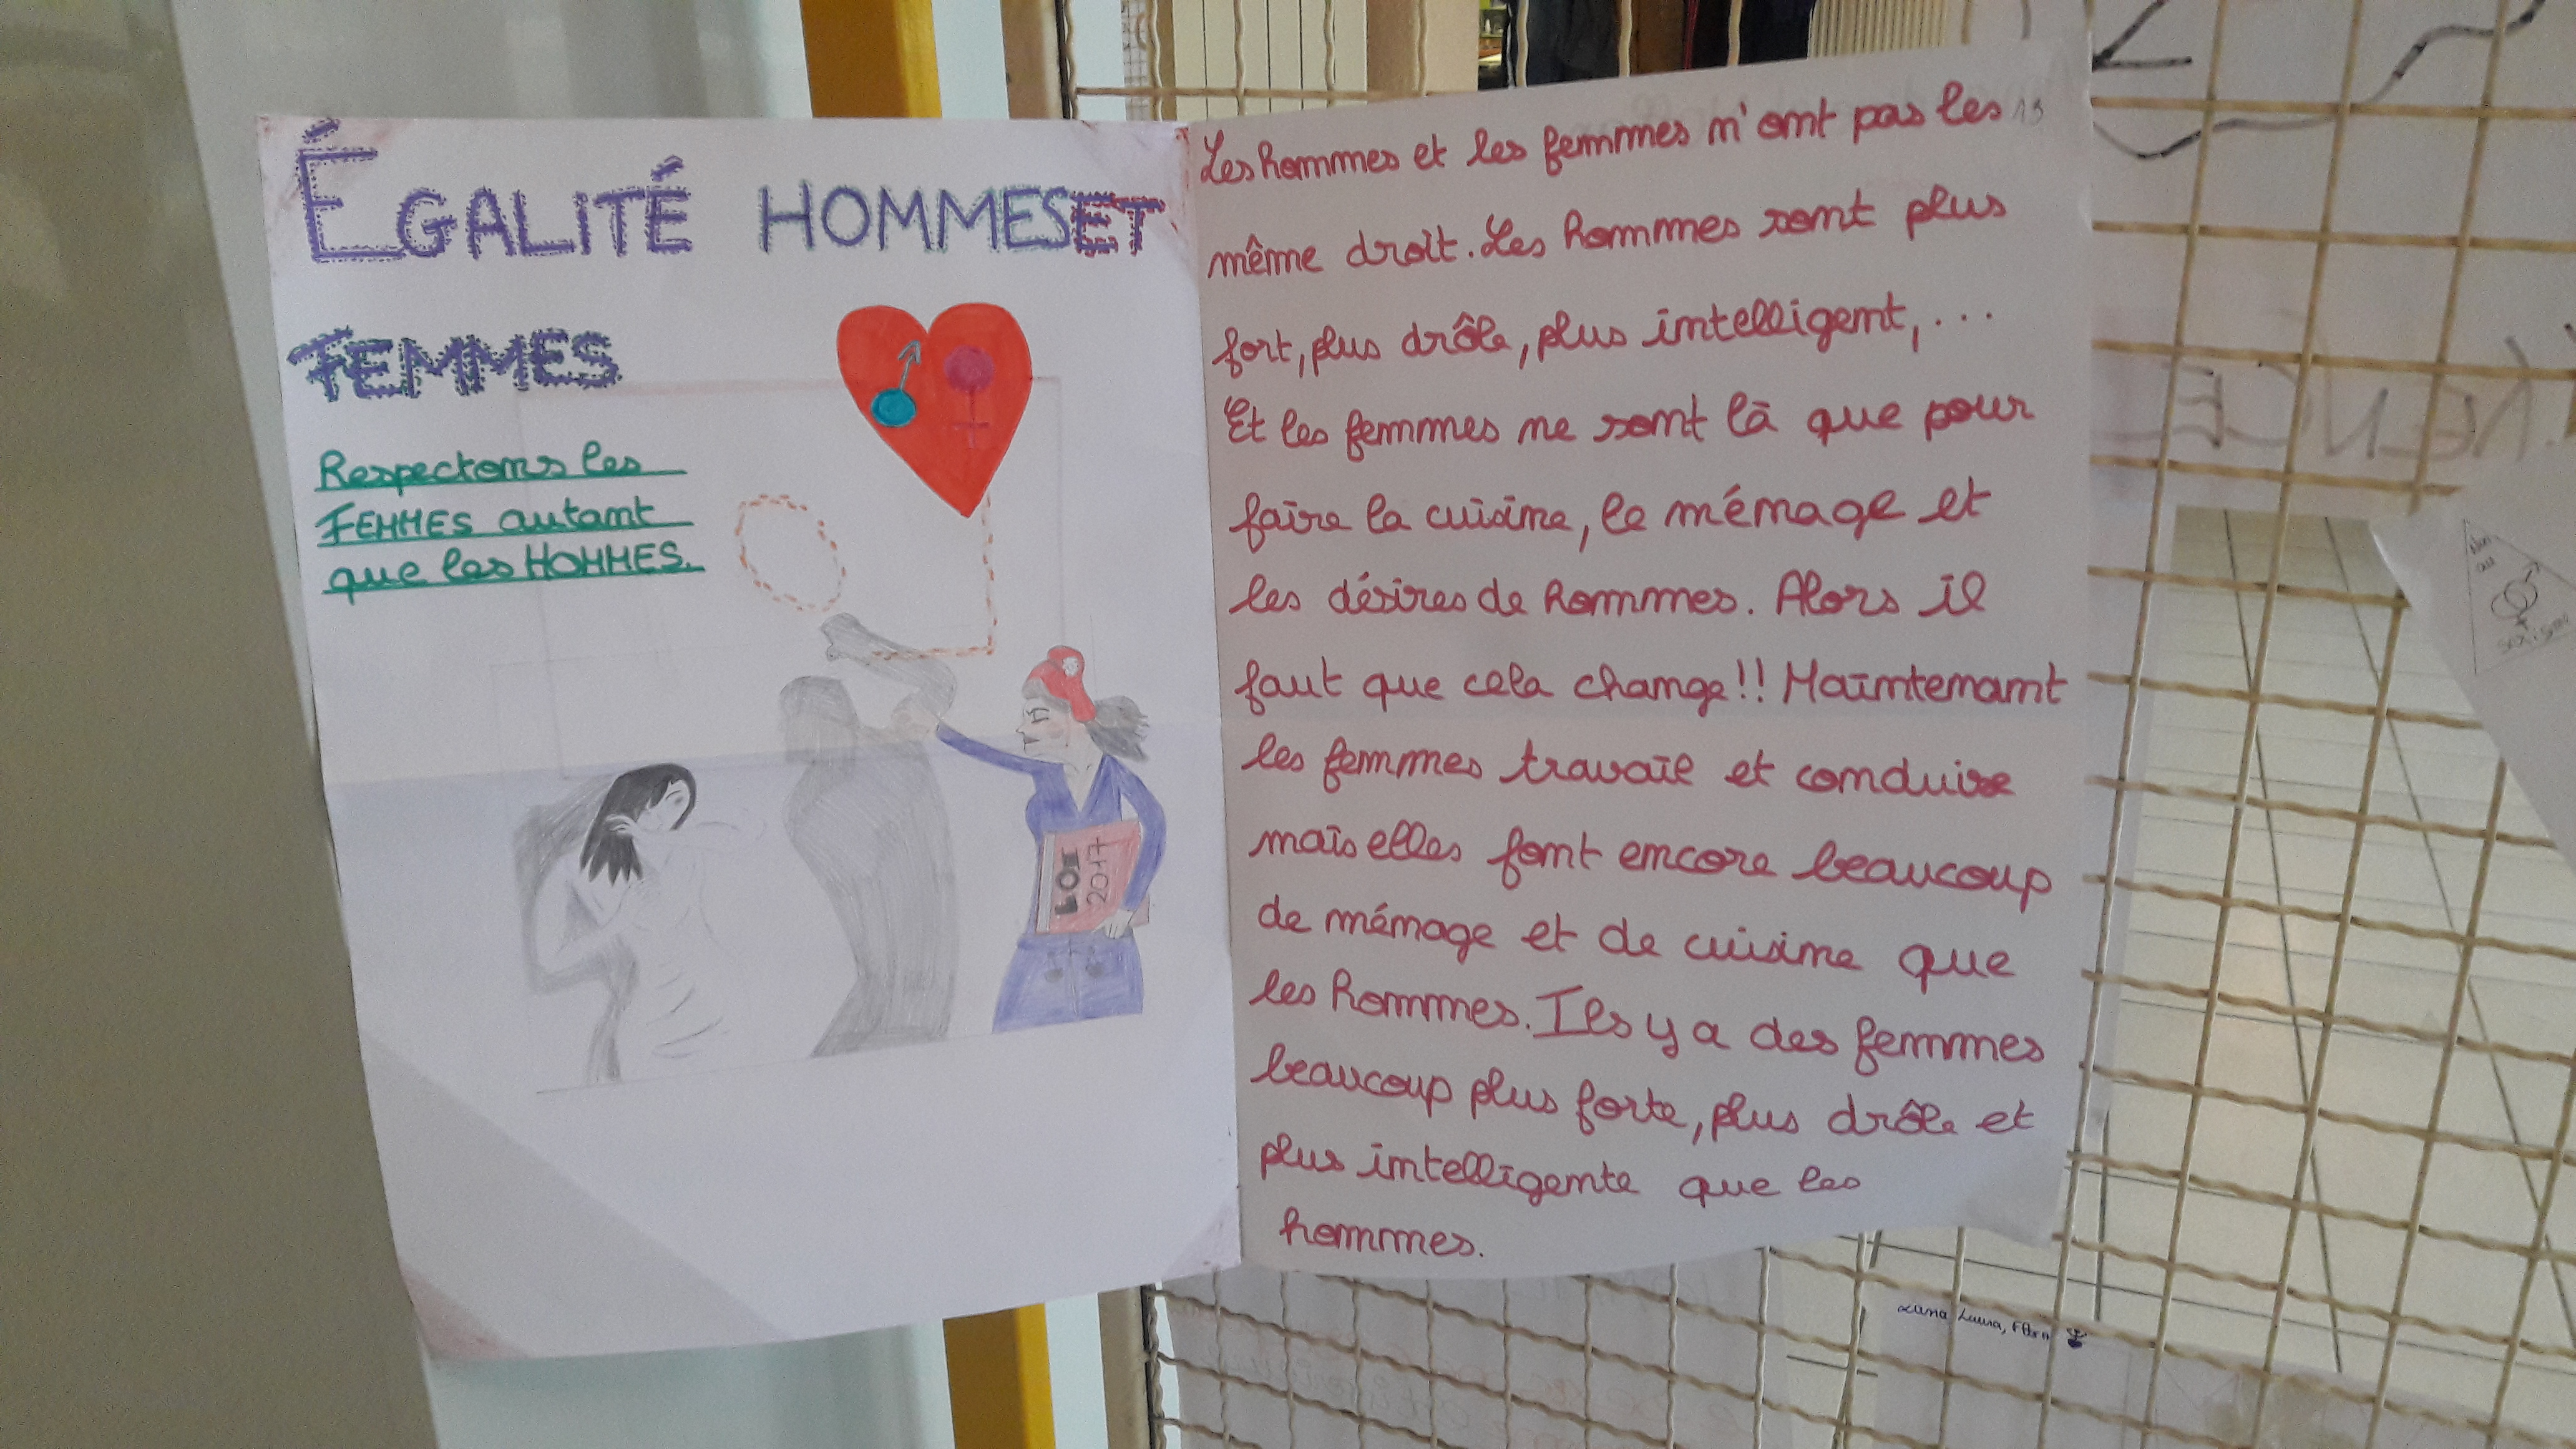 ÉGALITÉ HOMMES ET
FEMMES
Respectons les
FEMMES autant
que les HOMMES.
LOI
2017
Les hommes et les femmes n'ont pas les
13
même droit. Les hommes sont plus
fort, plus drôle, plus intelligent, ...
Et les femmes ne sont là que pour
faire la cuisine, le ménage et
les désires de hommes. Alors il
faut que cela change!! Maintenant
les femmes travail et conduise
mais elles font encore beaucoup
de ménage et de cuisine que
les hommes. Ils y a des femmes
beaucoup plus forte, plus drôle et
plus intelligente que les
hommes.
Non
au
sexisme
Luna, Laura,